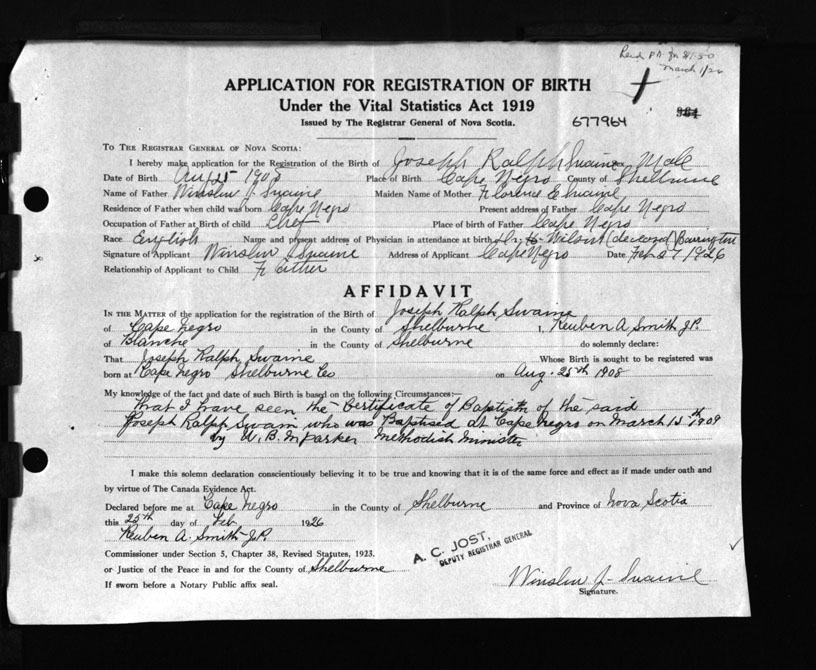 March 1/26
APPLICATION FOR REGISTRATION OF BIRTH
Under the Vital Statistics Act 1919
Issued by The Registrar General of Nova Scotia.
677964
TO THE REGISTRAR GENERAL OF NOVA SCOTIA:
I hereby make application for the Registration of the Birth of Joseph Ralph Swaine Sex Male
Date of Birth Aug 25 1908 Place of Birth Cape Negro County of Shelburne
Name of Father Winslow J. Swaine Maiden Name of Mother Florence E Swaine
Residence of Father when child was born Cape Negro Present address of Father Cape Negro
Occupation of Father at Birth of child Chef Place of birth of Father Cape Negro
Race English Name and present address of Physician in attendance at birth Dr Wilbert (deceased) Barrington
Signature of Applicant Winslow J Swaine Address of Applicant Cape Negro Date Feb 27 1926
Relationship of Applicant to Child Father
AFFIDAVIT
IN THE MATTER of the application for the registration of the Birth of Joseph Ralph Swaine
of Cape Negro in the County of Shelburne I, Reuben A. Smith J.P.
of Blanche in the County of Shelburne do solemnly declare:
That Joseph Ralph Swaine Whose Birth is sought to be registered was
born at Cape Negro Shelburne Co on Aug. 25th 1908
My knowledge of the fact and date of such Birth is based on the following Circumstances:—
That I have seen the Certificate of Baptism of the said
Joseph Ralph Swain who was Baptised at Cape Negro on March 15th 1909
by W. B. M Parker Methodist Minister
I make this solemn declaration conscientiously believing it to be true and knowing that it is of the same force and effect as if made under oath and
by virtue of The Canada Evidence Act.
Declared before me at Cape Negro in the County of Shelburne and Province of Nova Scotia
this 25th day of Feb. 1926
Reuben A. Smith J.P.
Commissioner under Section 5, Chapter 38, Revised Statutes, 1923.
or Justice of the Peace in and for the County of Shelburne
If sworn before a Notary Public affix seal.
A. C. JOST,
DEPUTY REGISTRAR GENERAL
Winslow J. Swaine
Signature.